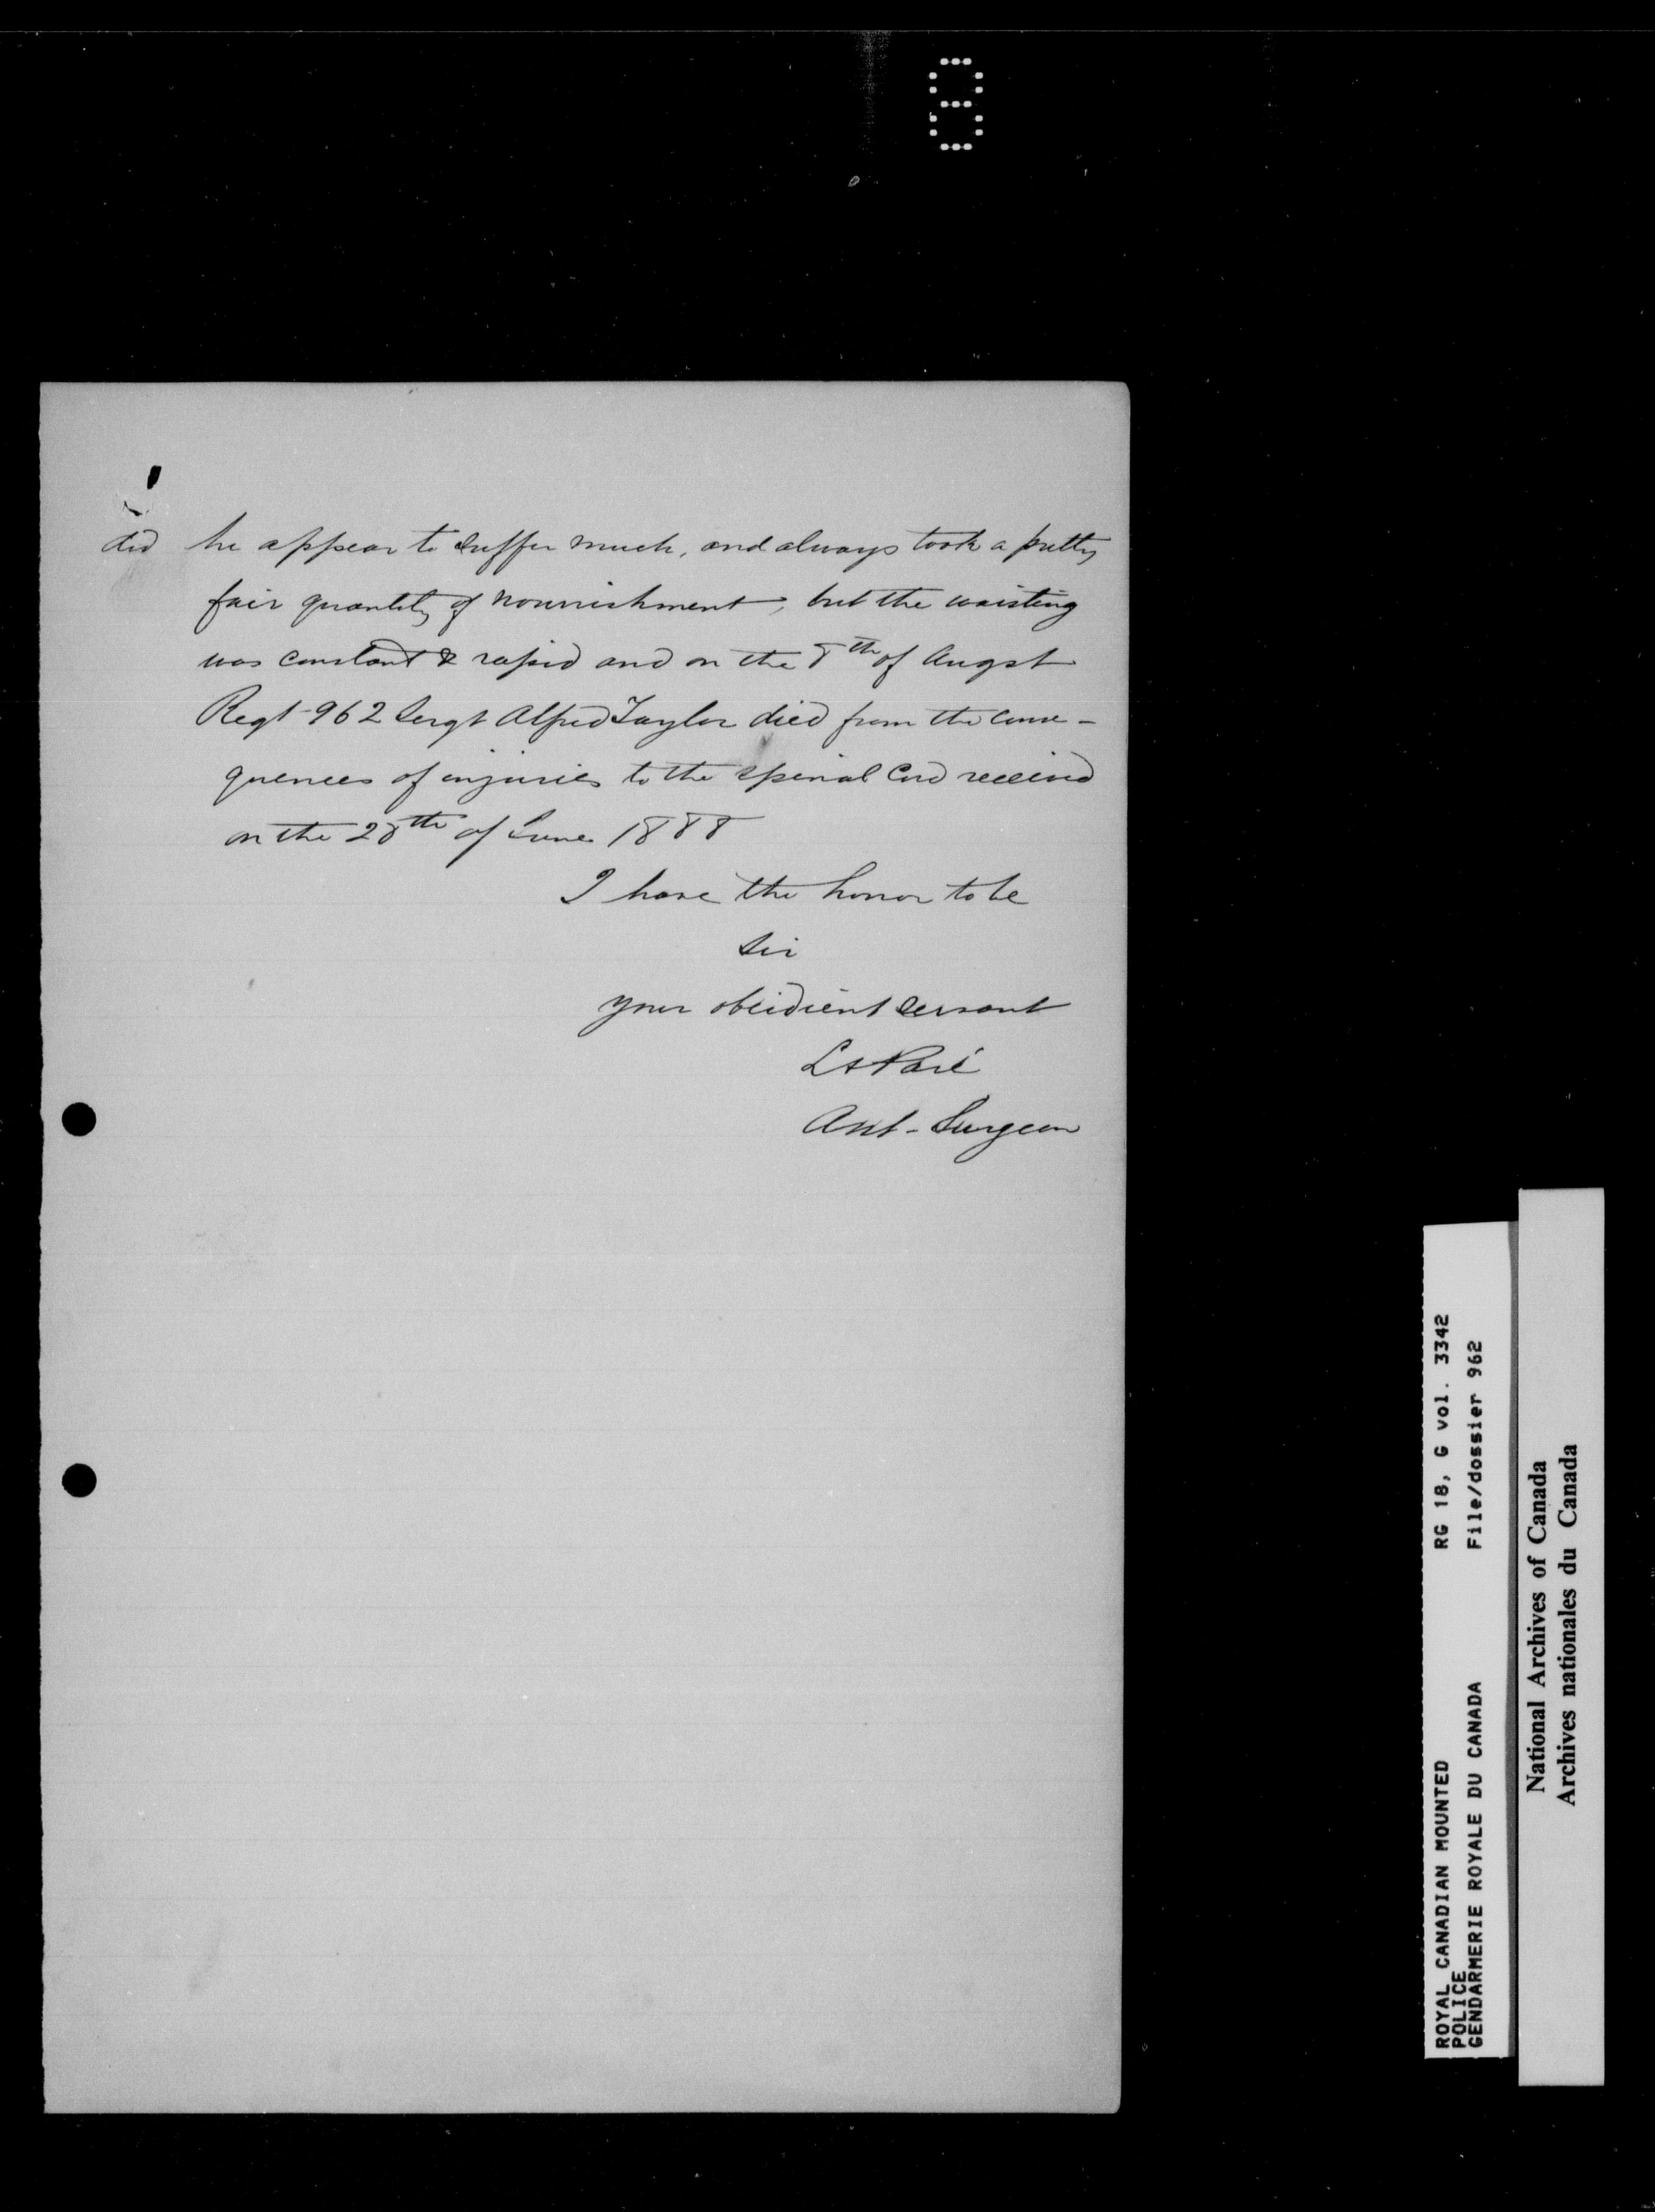 8
did he appear to suffer much, and always took a pretty
fair quantity of nourrishment, but the waisting
was constant & rapid and on the 8th of Augst
Regt 962 Sergt Alfred Taylor died from the conse-
quences of injuries to the spinal Cord received
on the 28th of June 1888
I have the honor to be
Sir
your obeidient servant
Paré
Asst-Surgeon
ROYAL CANADIAN MOUNTED RG 18, G vol. 3342
POLICE
GENDARMERIE ROYALE DU CANADA File/dossier 962
National Archives of Canada
Archives nationales du Canada